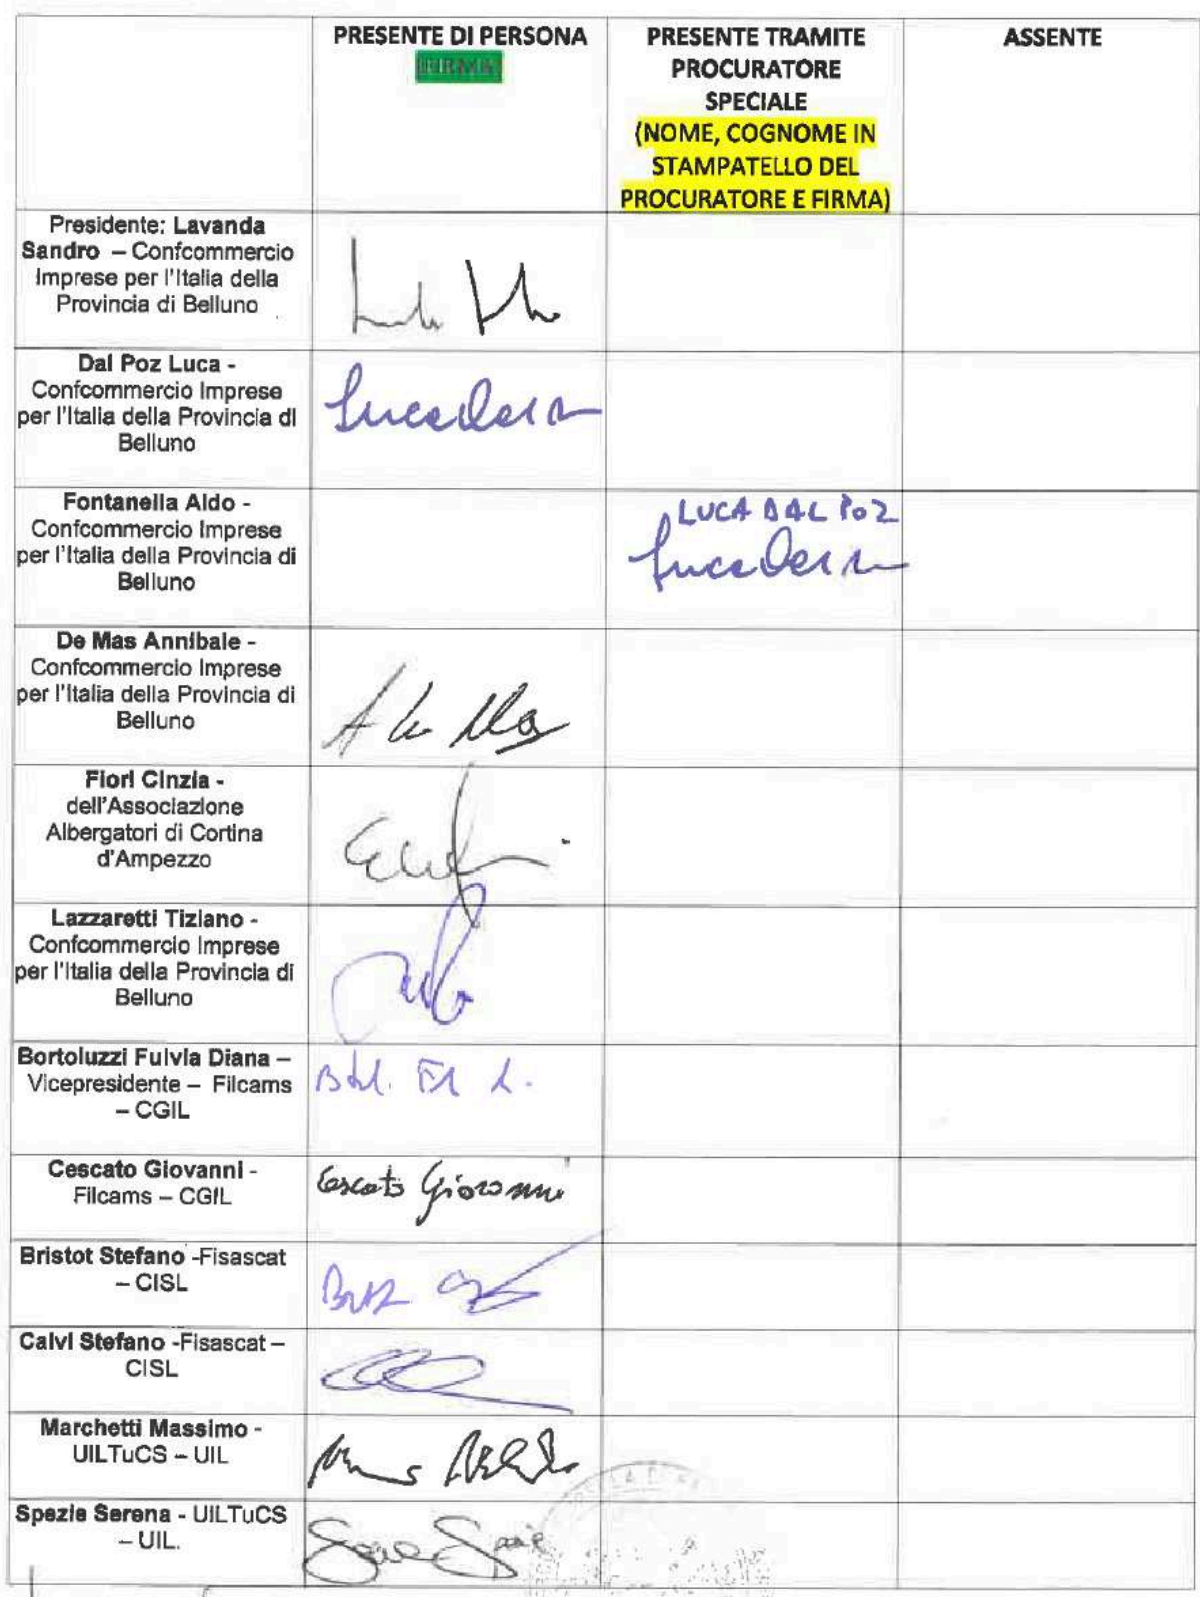 PRESENTE DI PERSONA
FIRMA
PRESENTE TRAMITE
PROCURATORE
SPECIALE
(NOME, COGNOME IN
STAMPATELLO DEL
PROCURATORE E FIRMA)
ASSENTE
Presidente: Lavanda
Sandro – Confcommercio
Imprese per l'Italia della
Provincia di Belluno
Dal Poz Luca -
Confcommercio Imprese
per l'Italia della Provincia di
Belluno
Fontanella Aldo -
Confcommercio Imprese
per l'Italia della Provincia di
Belluno
LUCA DAL POZ
De Mas Annibale -
Confcommercio Imprese
per l'Italia della Provincia di
Belluno
Fiori Cinzia -
dell'Associazione
Albergatori di Cortina
d'Ampezzo
Lazzaretti Tiziano -
Confcommercio Imprese
per l'Italia della Provincia di
Belluno
Bortoluzzi Fulvia Diana –
Vicepresidente – Filcams
– CGIL
Cescato Giovanni -
Filcams – CGIL
Cescato Giovanni
Bristot Stefano -Fisascat
– CISL
Calvi Stefano -Fisascat –
CISL
Marchetti Massimo -
UILTuCS – UIL
Spezie Serena - UILTuCS
– UIL.